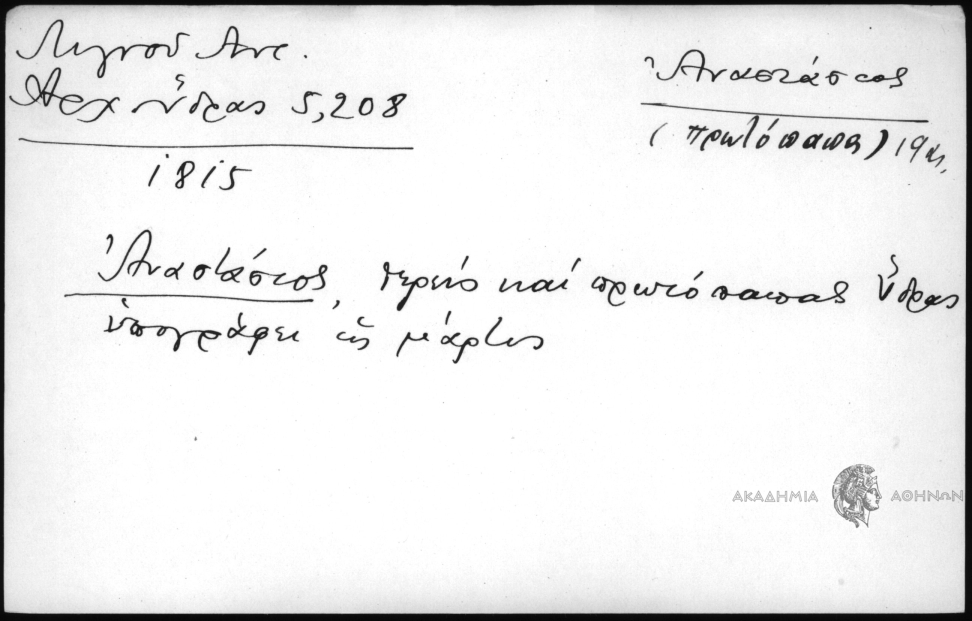 Λιγνού Αντ.
Αρχ Ὕδρας 5,208
1815
Ἀναστάσιος
(πρωτόπαπα) 19 αι.
Ἀναστάσιος, ἱερεύς καί πρωτόπαπας Ὕδρας
ὑπογράφει ὡς μάρτυς
ΑΚΑΔΗΜΙΑ ΑΘΗΝΩΝ